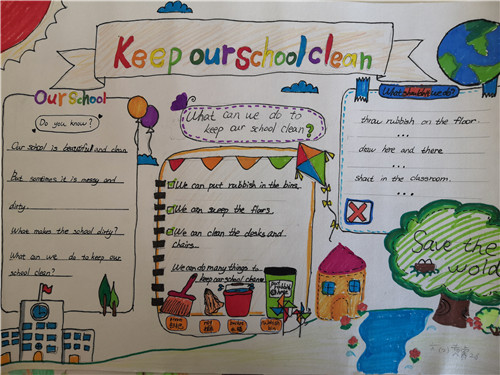 Keep our school clean
Our School
Do you know?
Our school is beautiful and clean.
But somtimes it is messy and
dirty.
What makes the school dirty?
What can we do to keep our
school clean?
What can we do to
keep our school clean?
We can put rubbish in the bins.
We can sweep the floors.
We can clean the desks and
chairs.
We can do many things to
keep our school
What shouldn't we do?
throw rubbish on the floor.
...
draw here and there
...
shout in the classroom.
...
Save the
wold